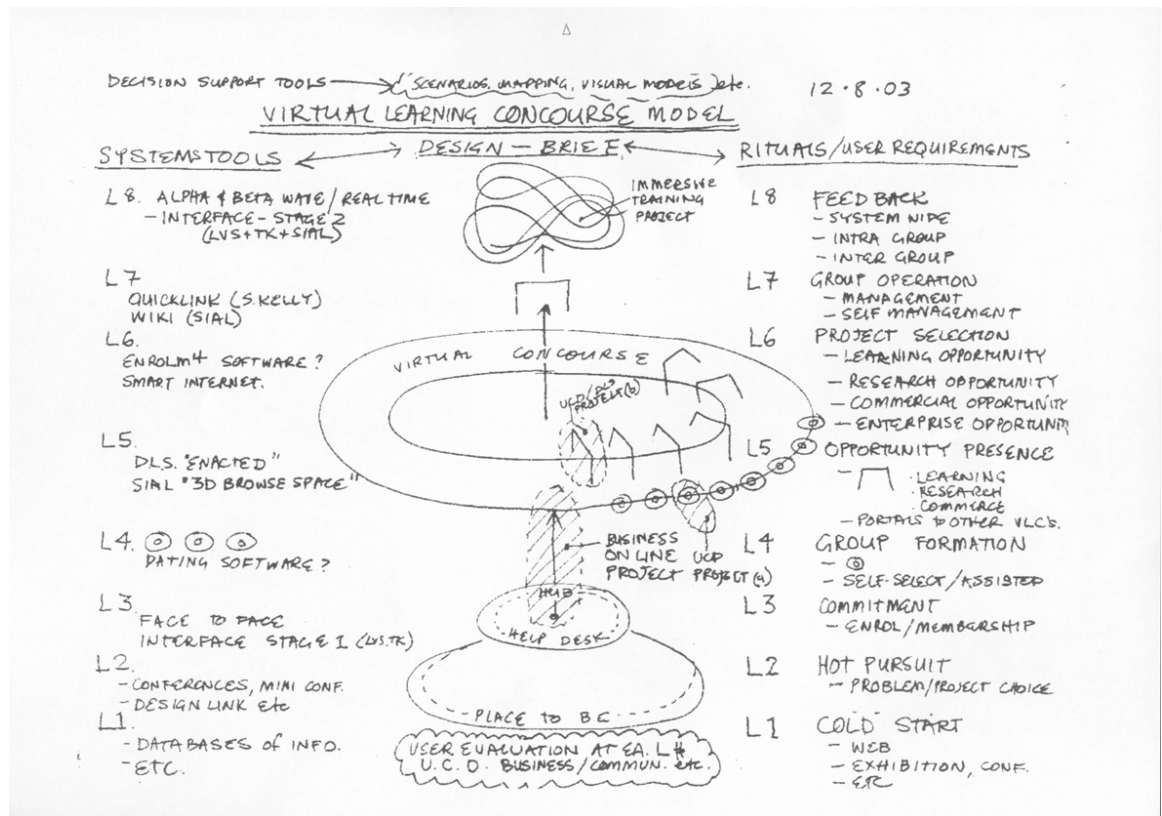 DECISION SUPPORT TOOLS → (SCENARIOS, MAPPING, VISUAL MODELS) etc.
12·8·03
VIRTUAL LEARNING CONCOURSE MODEL
SYSTEMS TOOLS
DESIGN – BRIEF
RITUALS/USER REQUIREMENTS
L8. ALPHA & BETA WAVE/REAL TIME
– INTERFACE – STAGE 2
(LVS+TK+SIAL)
L7
QUICKLINK (S.KELLY)
WIKI (SIAL)
L6.
ENROLM4 SOFTWARE?
SMART INTERNET.
L5.
D.L.S. "ENACTED"
SIAL "3D BROWSE SPACE"
L4.
DATING SOFTWARE?
L3
FACE TO FACE
INTERFACE STAGE I (LVS.TK)
L2.
– CONFERENCES, MINI CONF.
– DESIGN LINK etc
L1.
– DATABASES of INFO.
– ETC.
IMMERSIVE
TRAINING
PROJECT
VIRTUAL CONCOURSE
UCD/DLS
PROJECT (b)
BUSINESS
ON LINE
PROJECT
UCD
PROJECT (a)
HUB
HELP DESK
PLACE TO BE
USER EVALUATION AT EA. L#
U.C.D. BUSINESS/COMMUN. etc.
L8 FEEDBACK
– SYSTEM WIDE
– INTRA GROUP
– INTER GROUP
L7 GROUP OPERATION
– MANAGEMENT
– SELF MANAGEMENT
L6 PROJECT SELECTION
– LEARNING OPPORTUNITY
– RESEARCH OPPORTUNITY
– COMMERCIAL OPPORTUNITY
– ENTERPRISE OPPORTUNITY
L5 OPPORTUNITY PRESENCE
– · LEARNING
· RESEARCH
· COMMERCE
– PORTALS to OTHER VLC's.
L4 GROUP FORMATION
– SELF-SELECT/ASSISTED
L3 COMMITMENT
– ENROL/MEMBERSHIP
L2 HOT PURSUIT
– PROBLEM/PROJECT CHOICE
L1 COLD START
– WEB
– EXHIBITION, CONF.
– ETC